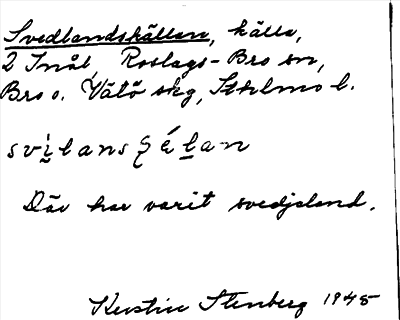 Svedlandskällan, källa,
2 Snål, Roslags-Bro sn,
Bro o. Vätö skg, Sthlms l.
Där har varit svedjeland.
Kerstin Stenberg 1945